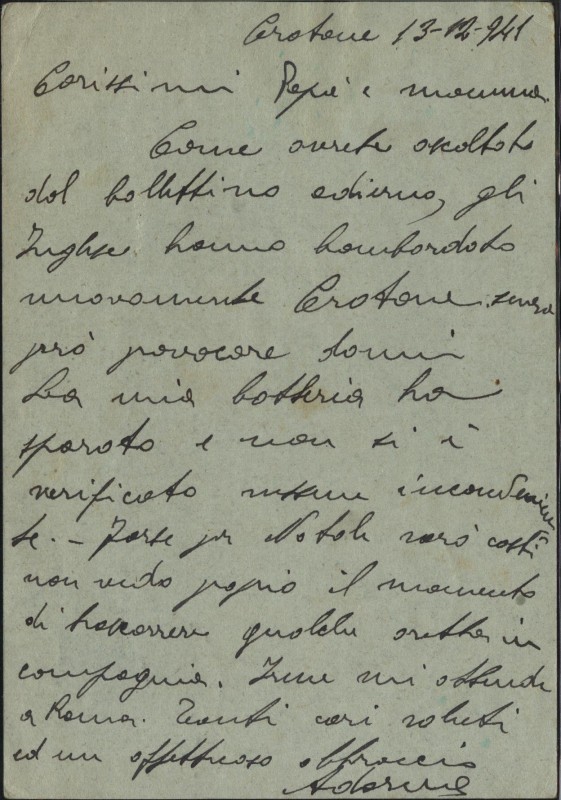 Crotone 13-12-941
Carissimi Papà e mamma
Come avrete ascoltato
dal bollettino odierno, gli
Inglesi hanno bombardato
nuovamente Crotone senza
però provocare danni
La mia batteria ha
sparato e non si è
verificato nessun inconvenien
te. - Forse per Natale sarò costì
non vedo proprio il momento
di trascorrere qualche oretta in
compagnia. Irene mi attende
a Roma. Tanti cari saluti
ed un affettuoso abbraccio